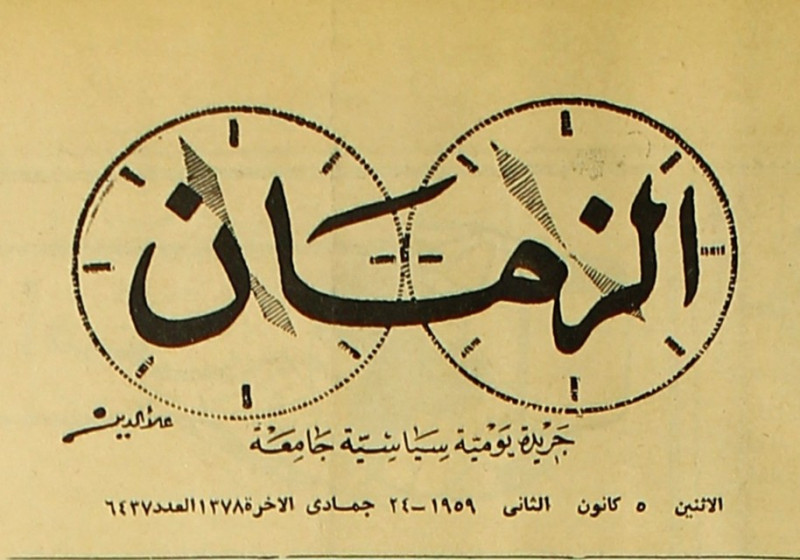 الزمان
علاء الدين
جريدة يومية سياسية جامعة
الاثنين ٥ كانون الثانى ١٩٥٩-٢٤ جمادى الاخرة ١٣٧٨ العدد ٦٤٣٧